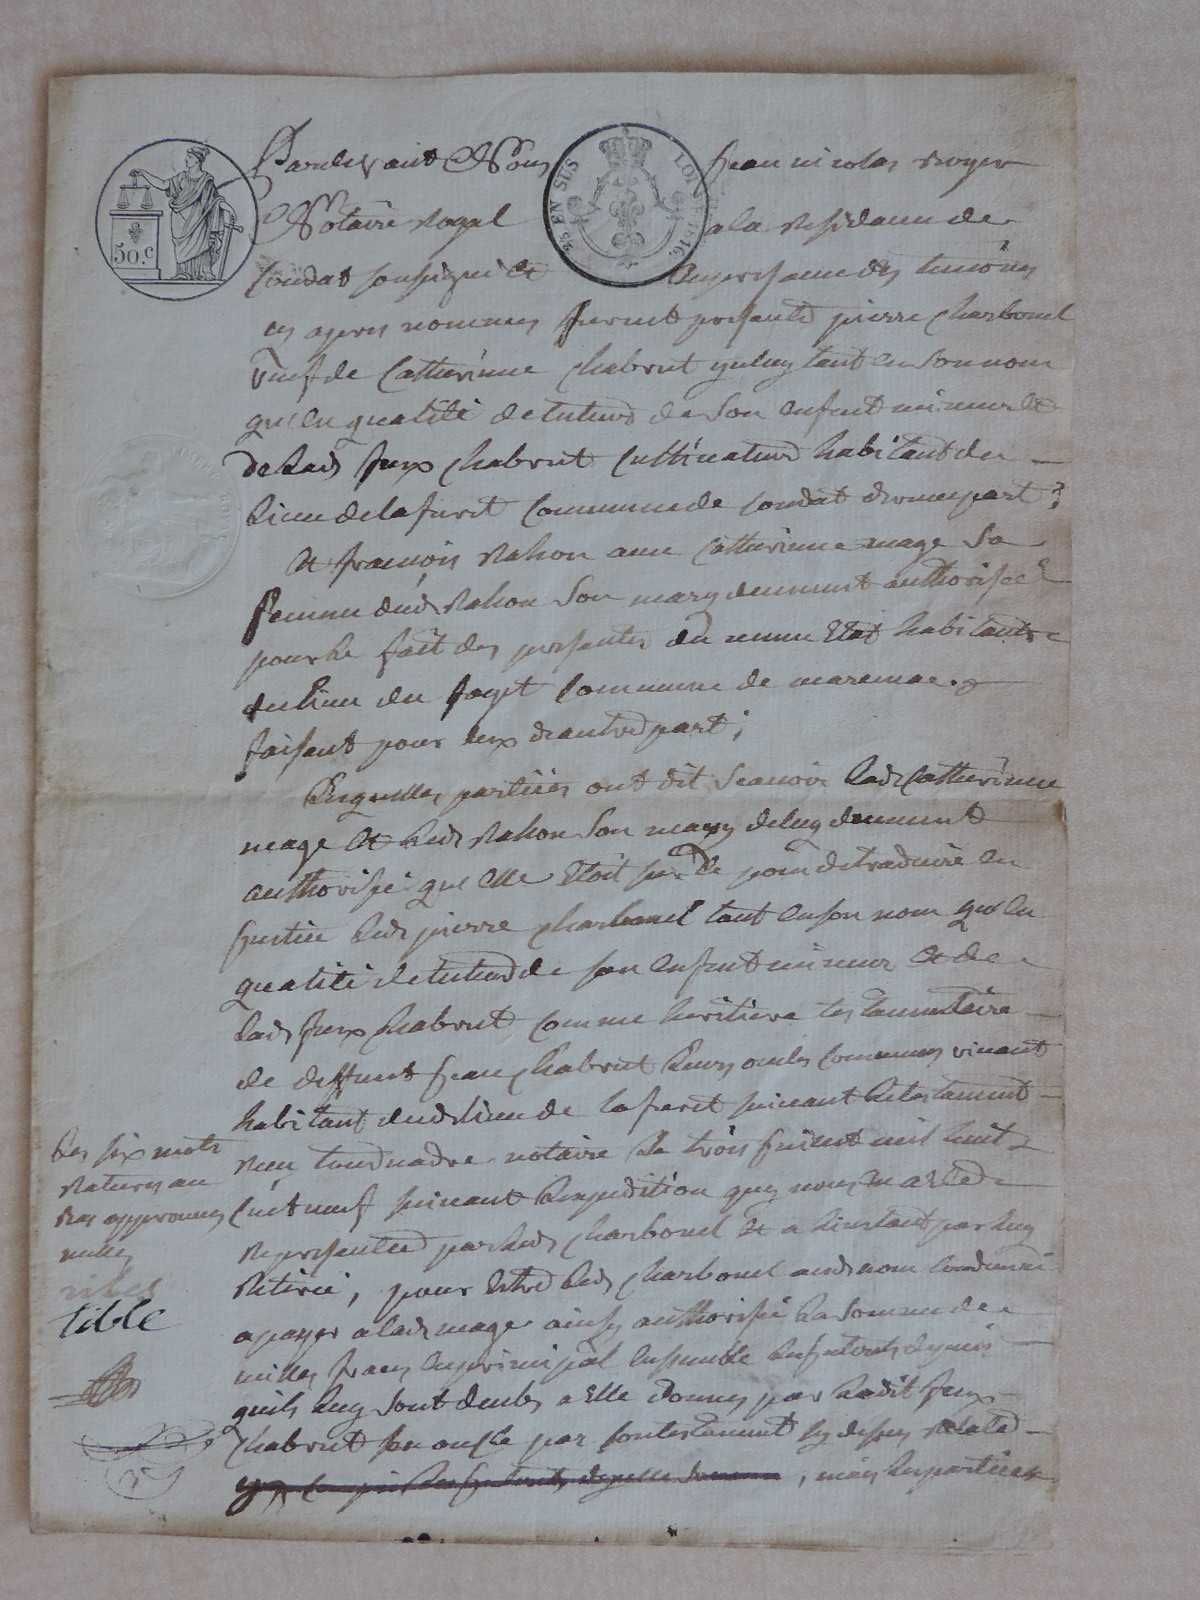 50.c
25 EN SUS
LOI DE 1816.
Pardevant Nous Jean nicolas
Notaire Royal a la Residence de
Condat soussigné et En presence des temoins
cy apres nommes furent presents pierre Charbonel
veuf de Catherinne Chabrut tant en son nom
qu'en qualité de tuteur de son enfent mineur et
de Lad. feux Chabrut Cultivateur habitant du
Lieu de Commune de Condat d'vune part
et francois Rahon avec Catherinne mage Sa
femme dud. Rahon Son mary deument authorisée
pour Le fait des presentes du meme Etat habitants
du Lieu du faget Commune de marcenac
faisant pour eux d'autre part;
Lesquelles parties ont dit Scavoir Lad. Catherinne
mage et Led. Rahon Son mary de luy deument
authorisée que elle Etoit sur Le point de traduire en
justice Led. pierre Charbonel tant en son nom qu'en
qualité de tuteur de son enfent mineur et de
Lad. feux Chabrut comme heritiere testamentaire
de deffunt jean Chabrut Leurs oncles communs vivant
habitant dud. Lieu de suivant Le testament
Reçu notaire Le trois mil huit
Cent neuf suivant L'expedition quy nous a Eté
Representée par Led. Charbonel et a L'instant par Luy
Retirée, pour Estre Led. Charbonel aud. nom Condamné
a payer a Lad. mage ainsy authorisée La Somme de
milles francs en principal ensemble Les interets depuis
quils Luy sont deubs a Elle donnés par Ledit feux
Chabrut son oncle par son testament sy dessus relaté
, mais Les parties
Les six mots
Raturés au
Bas approuvés
nulles
tible